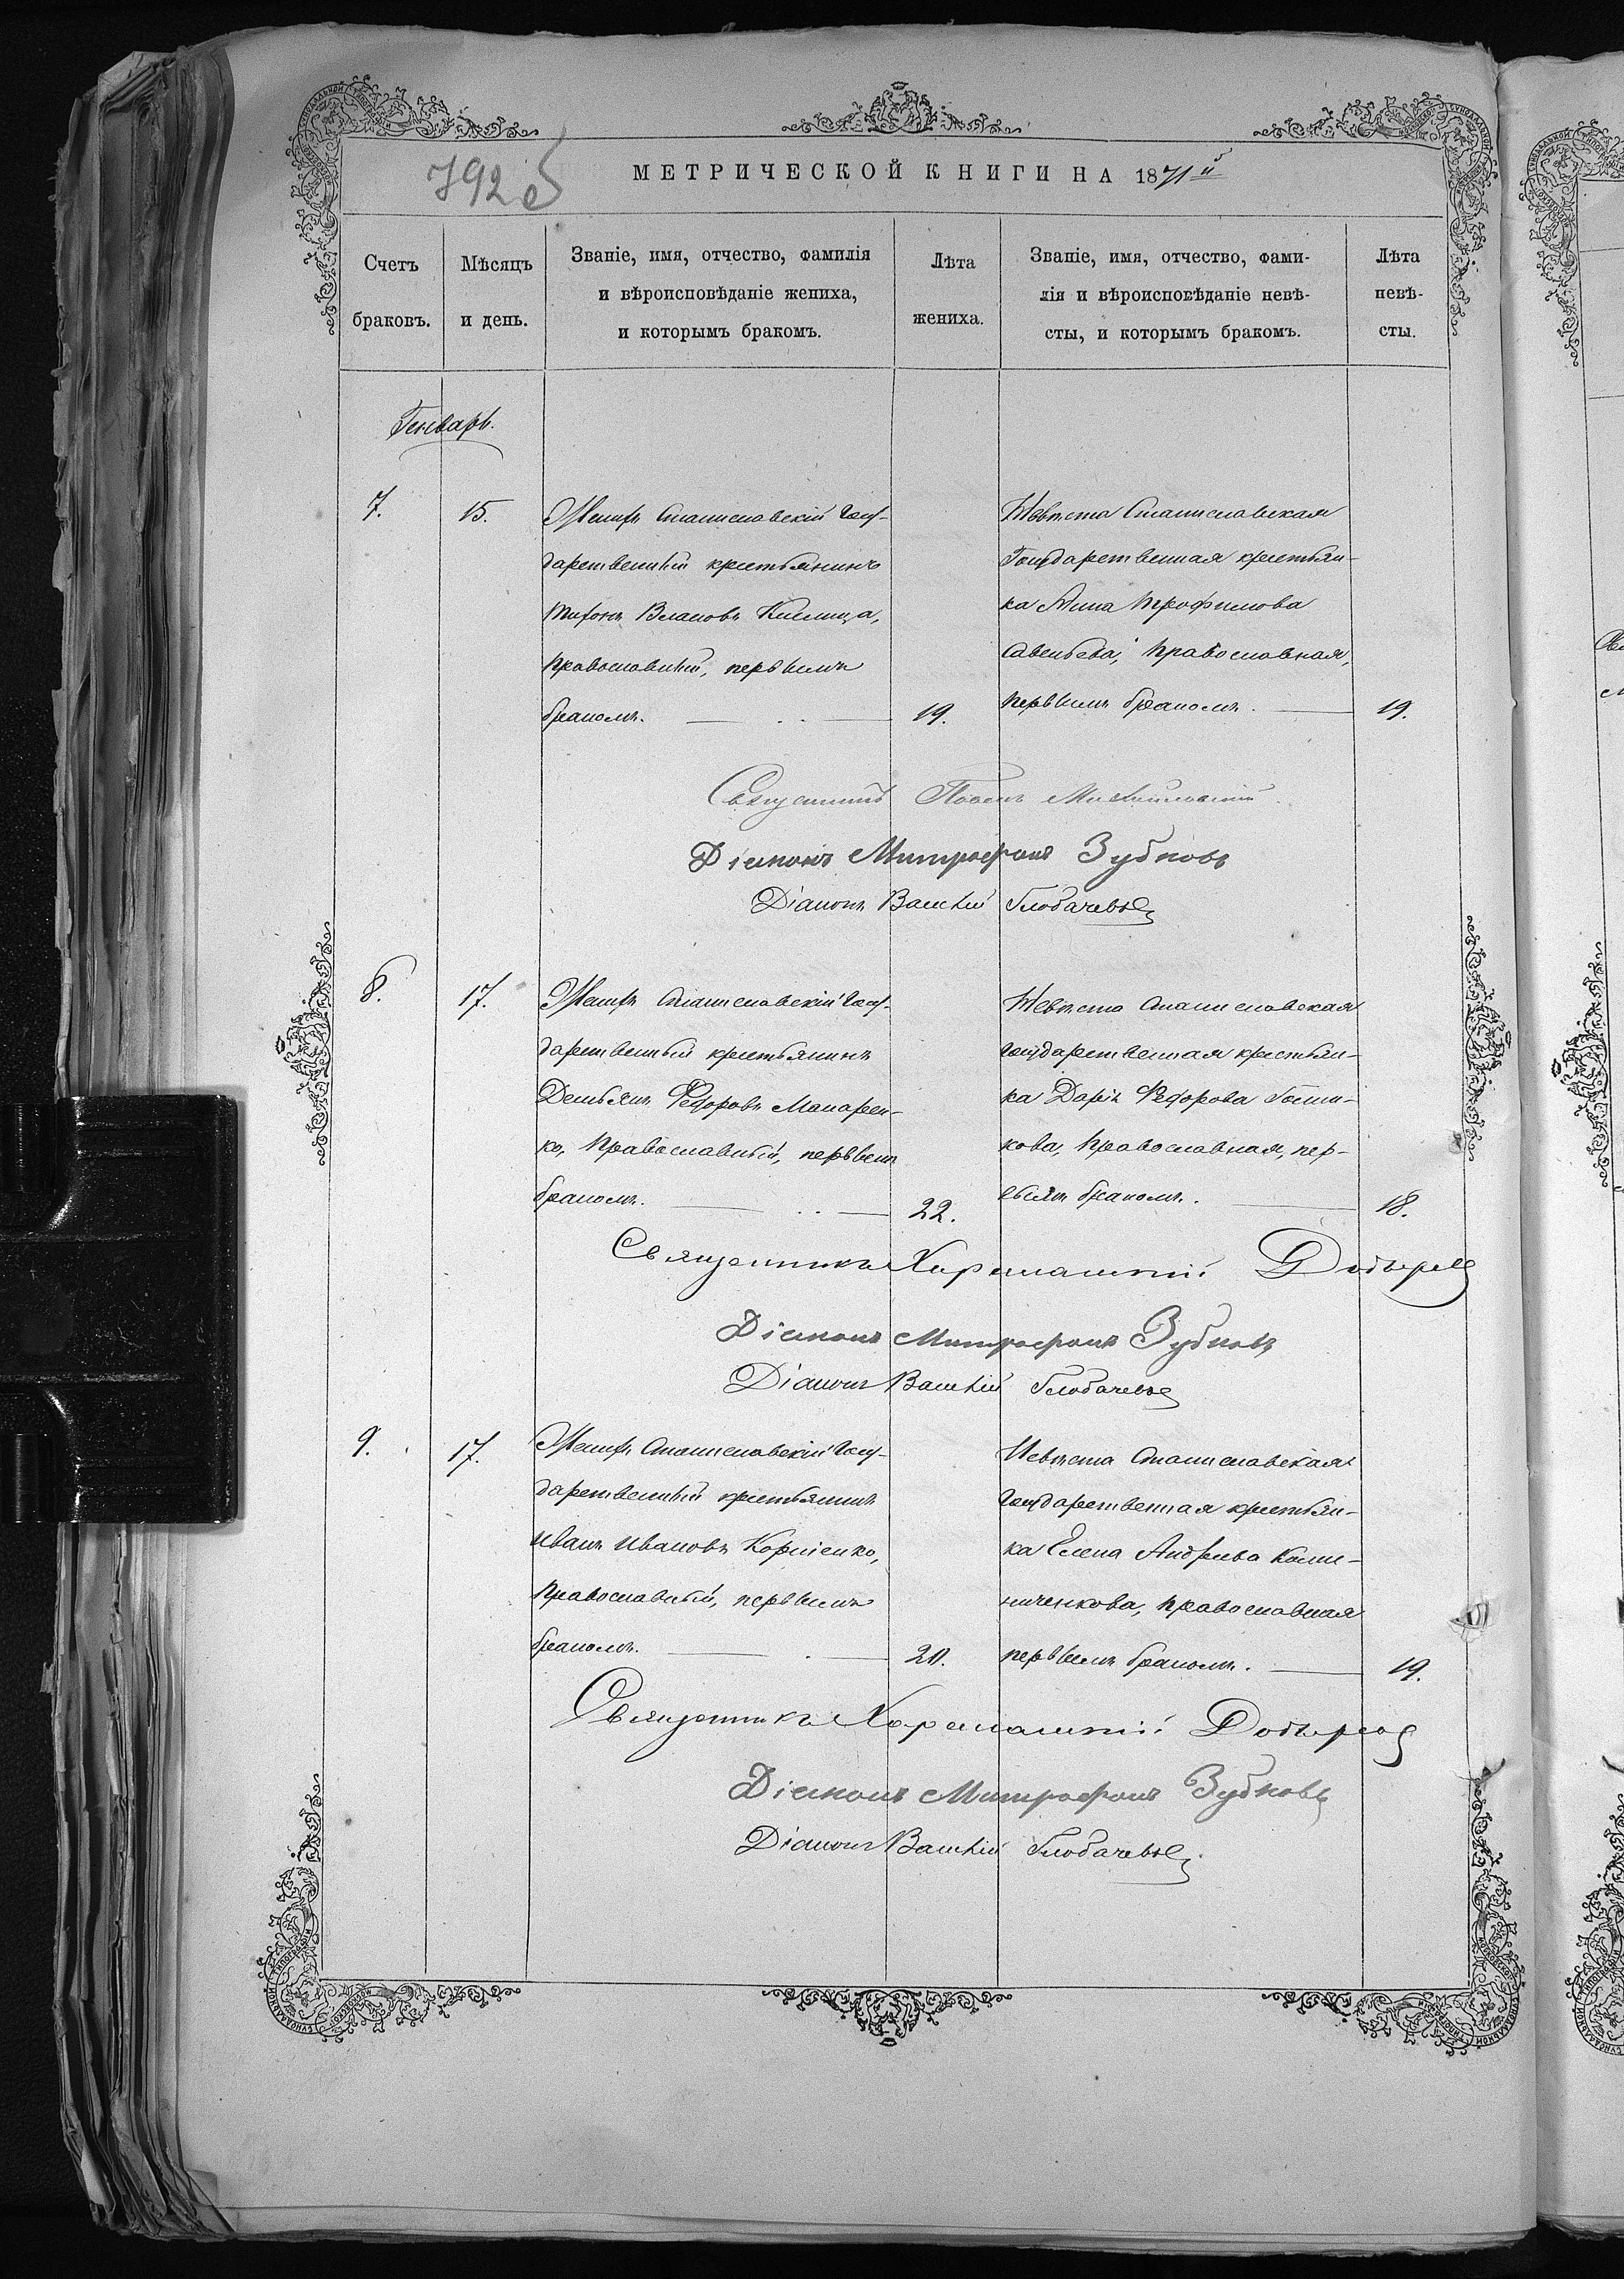 792 об
МЕТРИЧЕСКОЙ КНИГИ НА 1871й
Счетъ браковъ.
Мѣсяцъ и день.
Званіе, имя, отчество, фамилія
и вѣроисповѣданіе жениха,
и которымъ бракомъ.
Лѣта жениха.
Званіе, имя, отчество, фами-
лія и вѣроисповѣданіе невѣ-
сты, и которымъ бракомъ.
Лѣта невѣ-
сты.
Генварь.
7.
15.
Женихъ Станиславскій Госу-
дарственный крестьянинъ
Тихонъ Власовъ Кислица,
православный, первымъ
бракомъ.
19.
Невѣста Станиславская
Государственная крестьян-
ка Анна Трофимова
Савельева, православная,
первымъ бракомъ.
19.
Священникъ Павелъ
Діаконъ Митрофанъ Зубковъ
Діаконъ Василій Глобачевъ
8.
17.
Женихъ Станиславскій Госу-
дарственный крестьянинъ
Демьянъ Ѳедоровъ Макарен-
ко, православный, первымъ
бракомъ.
22.
Невѣста Станиславская
Государственная крестьян-
ка Дарія Ѳедорова
кова, православная, пер-
вымъ бракомъ.
18.
Священникъ Харлампій
Діаконъ Митрофанъ Зубковъ
Діаконъ Василій Глобачевъ
9.
17.
Женихъ Станиславскій Госу-
дарственный крестьянинъ
Иванъ Ивановъ Корніенко,
православный, первымъ
бракомъ.
20.
Невѣста Станиславская
Государственная крестьян-
ка Елена Андреева Кали-
ниченкова, православная
первымъ бракомъ.
19.
Священникъ Харлампій
Діаконъ Митрофанъ Зубковъ
Діаконъ Василій Глобачевъ